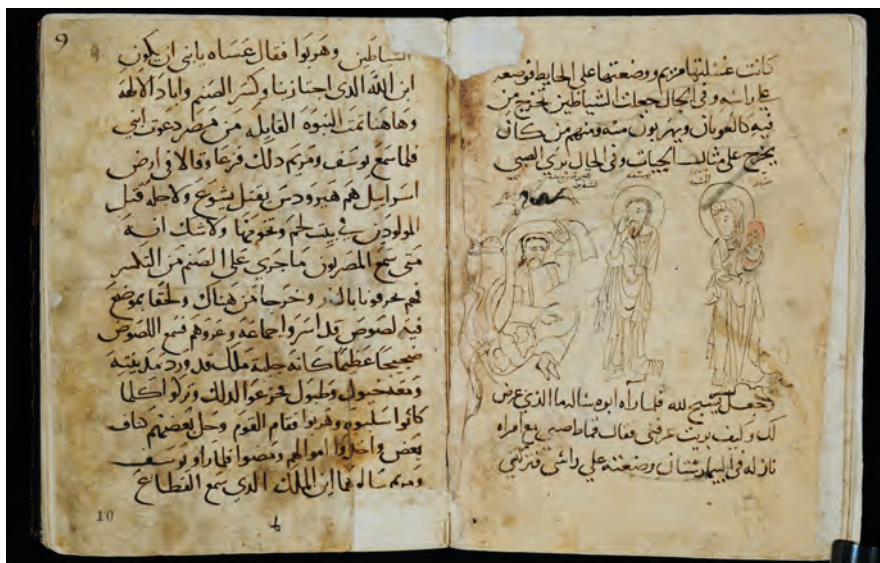 كانت غسلتها مريم ووضعتها على الحايط فوضعه
على راسه وفي الحال جعلت الشياطين تخرج من
فيه كالغربان ويهربون منه ومنهم من كان
يخرج على مثال الحيات وفي الحال بري الصبي
وجعل يسبح لله فلما رآه ابوه ساله ما الذي عرض
لك وكيف بريت عرفني فقال قماط صبي مع امراه
نازله في البيمارستان وضعته على راسي فتركني
9
الشياطين وهربوا فقال عساه يا بني ان يكون
ابن الله الذي اجتاز بنا وكسر الصنم واباد الالهة
وهاهنا تمت النبوه القايله من مصر دعوت ابني
فلما سمع يوسف ومريم ذلك فزعا وقالا في ارض
اسراييل هم هيرودس بقتل يشوع ولاجله قتل
المولودين في بيت لحم وتخومها ولا شك انه
متى سمع المصريون ما جري على الصنم من التكسر
فهم يحرقونا بالنار وخرجا من هناك ولحقا بموضع
فيه لصوص قد اسروا جماعه وعروهم فسمع اللصوص
ضجيجا عظيما كانه جلبة ملك قد ورد مدينته
ومعه خيول وطبول فجزعوا لذلك وتركوا كلما
كانوا سلبوه وهربوا فقام القوم وحل بعضهم كتاف
بعض واخذوا اموالهم ومضوا فلما راو يوسف
ومريم اين الملك الذي سمع القطاع
10